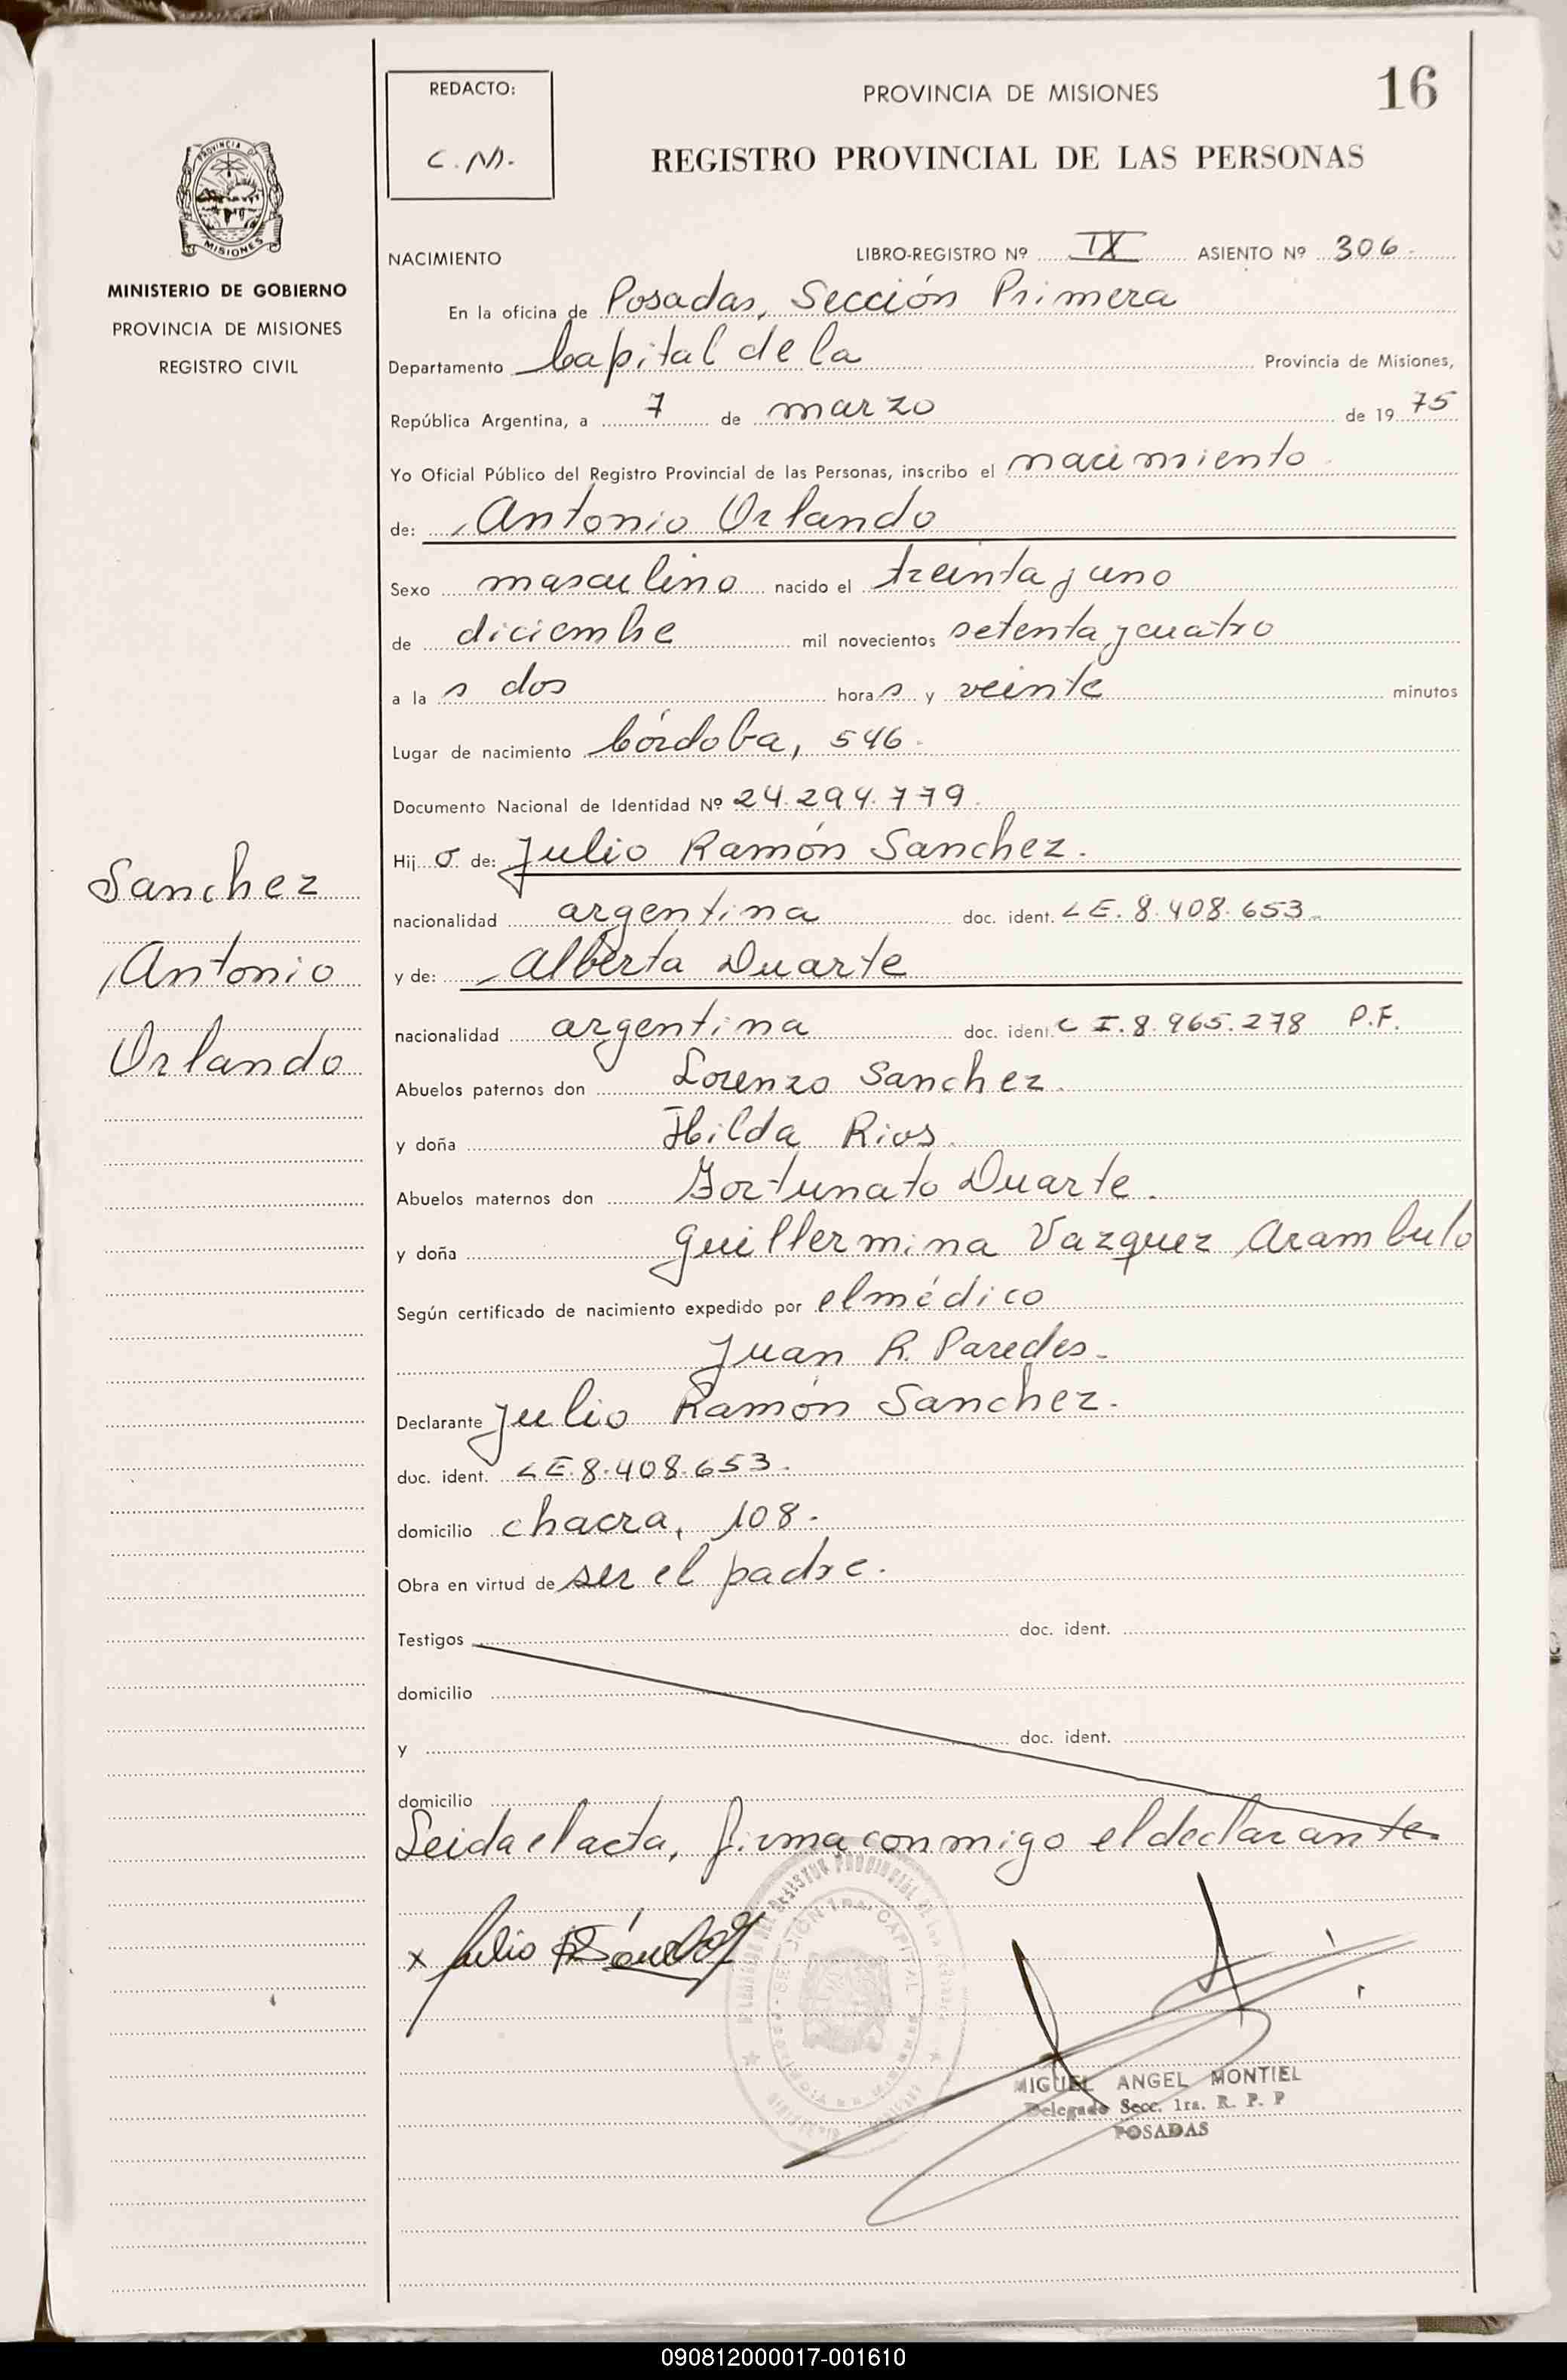 16
REDACTO:
C. N.
PROVINCIA DE MISIONES
REGISTRO PROVINCIAL DE LAS PERSONAS
PROVINCIA DE
MISIONES
MINISTERIO DE GOBIERNO
PROVINCIA DE MISIONES
REGISTRO CIVIL
NACIMIENTO LIBRO-REGISTRO Nº IX ASIENTO Nº 306.
En la oficina de Posadas, Sección Primera
Departamento Capital de la Provincia de Misiones,
República Argentina, a 7 de marzo de 1975
Yo Oficial Público del Registro Provincial de las Personas, inscribo el nacimiento
de: Antonio Orlando
Sexo masculino nacido el treinta y uno
de diciembre mil novecientos setenta y cuatro
a las dos horas y veinte minutos
Lugar de nacimiento Córdoba, 546.
Documento Nacional de Identidad Nº 24.294.779.
Hijo de: Julio Ramón Sanchez.
nacionalidad argentina doc. ident. LE. 8.408.653.
y de: Alberta Duarte
nacionalidad argentina doc. ident C I. 8.965.278 P.F.
Abuelos paternos don Lorenzo Sanchez.
y doña Hilda Rios.
Abuelos maternos don Fortunato Duarte.
y doña Guillermina Vazquez Arambulo
Según certificado de nacimiento expedido por el médico
Juan R. Paredes.
Declarante Julio Ramón Sanchez.
doc. ident. LE. 8.408.653.
domicilio chacra, 108.
Obra en virtud de ser el padre.
Testigos doc. ident.
domicilio
y doc. ident.
domicilio
Leida el acta, firma conmigo el declarante.
Sanchez
Antonio
Orlando
x Julio R Sánchez
MIGUEL ANGEL MONTIEL
Delegado Secc. 1ra. R. P. P
POSADAS
090812000017-001610